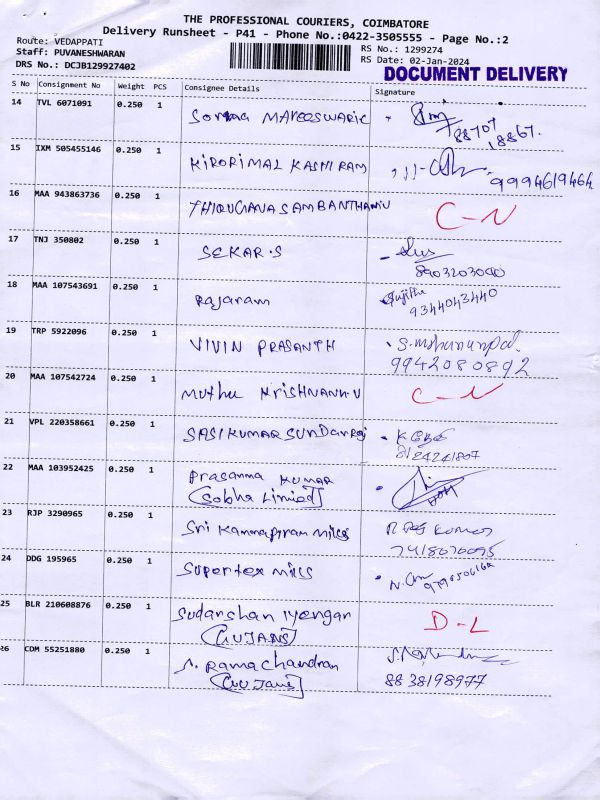 THE PROFESSIONAL COURIERS, COIMBATORE
Delivery Runsheet - P41 - Phone No.:0422-3505555 - Page No.:2
Route: VEDAPPATI
Staff: PUVANESHWARAN
DRS No.: DCJB129927402
RS No.: 1299274
RS Date: 02-Jan-2024
DOCUMENT DELIVERY
S No Consignment No Weight PCS Consignee Details Signature
14 TVL 6071091 0.250 1
88707
18867.
15 IXM 505455146 0.250 1 KIRORIMAL KASHIRAM
9994619464
16 MAA 943863736 0.250 1 C-N
17 TNJ 350802 0.250 1 SEKAR.S
8903203090
18 MAA 107543691 0.250 1 Rajaram Sujitha
9344043440
19 TRP 5922096 0.250 1 VIVIN PRASANTH
9942080892
20 MAA 107542724 0.250 1 Muthu C-N
21 VPL 220358661 0.250 1 SASIKUMAR SUNDARRAJ
8124241807
22 MAA 103952425 0.250 1 Prasanna KUMAR
(Sobha Limied)
23 RJP 3290965 0.250 1 Sri Kannapiran Mills Kumar
7418070095
24 DDG 195965 0.250 1 Supertex Mills
25 BLR 210608876 0.250 1 Sudarshan iyengar D-L
(GUJANS)
26 CDM 55251880 0.250 1 Ramachandran
8838198977